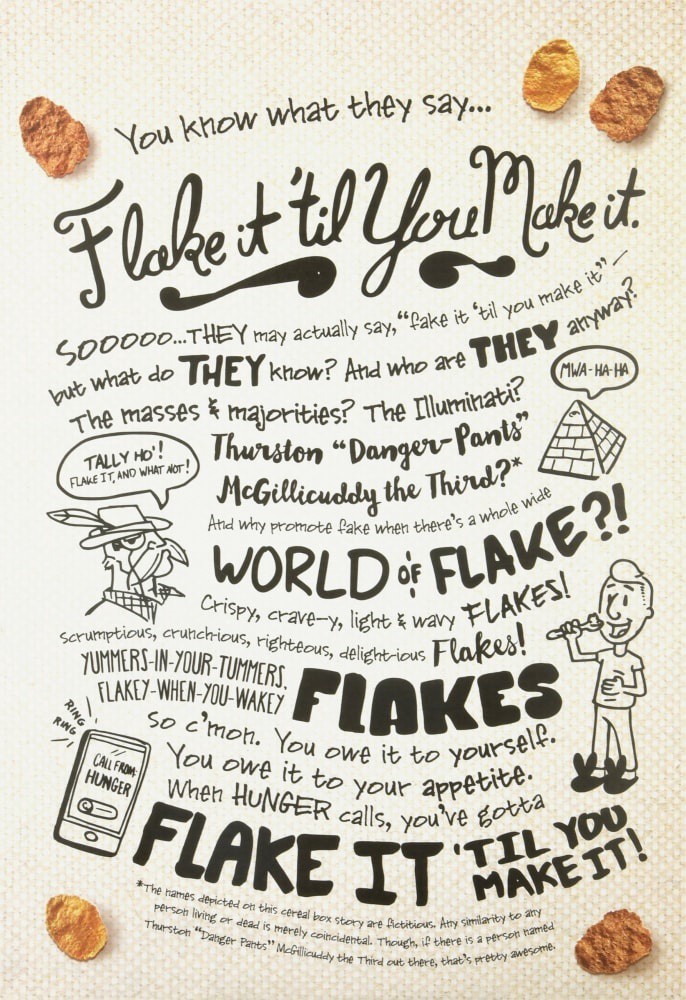 You know what they say...
Flake it 'til You Make it.
SOOOOO...THEY may actually say, "fake it 'til you make it" –
but what do THEY know? And who are THEY anyway?
MWA-HA-HA
The masses & majorities? The Illuminati?
TALLY HO'!
FLAKE IT, AND WHAT NOT!
Thurston "Danger-Pants"
McGillicuddy the Third?*
And why promote fake when there's a whole wide
WORLD of FLAKE?!
Crispy, crave-y, light & wavy FLAKES!
Scrumptious, crunch-ious, righteous, delight-ious Flakes!
YUMMERS-IN-YOUR-TUMMERS,
FLAKEY-WHEN-YOU-WAKEY
FLAKES
RING
RING
CALL FROM:
HUNGER
So c'mon. You owe it to yourself.
You owe it to your appetite.
When HUNGER calls, you've gotta
FLAKE IT 'TIL YOU
MAKE IT!
*The names depicted on this cereal box story are fictitious. Any similarity to any
person living or dead is merely coincidental. Though, if there is a person named
Thurston "Danger Pants" McGillicuddy the Third out there, that's pretty awesome.